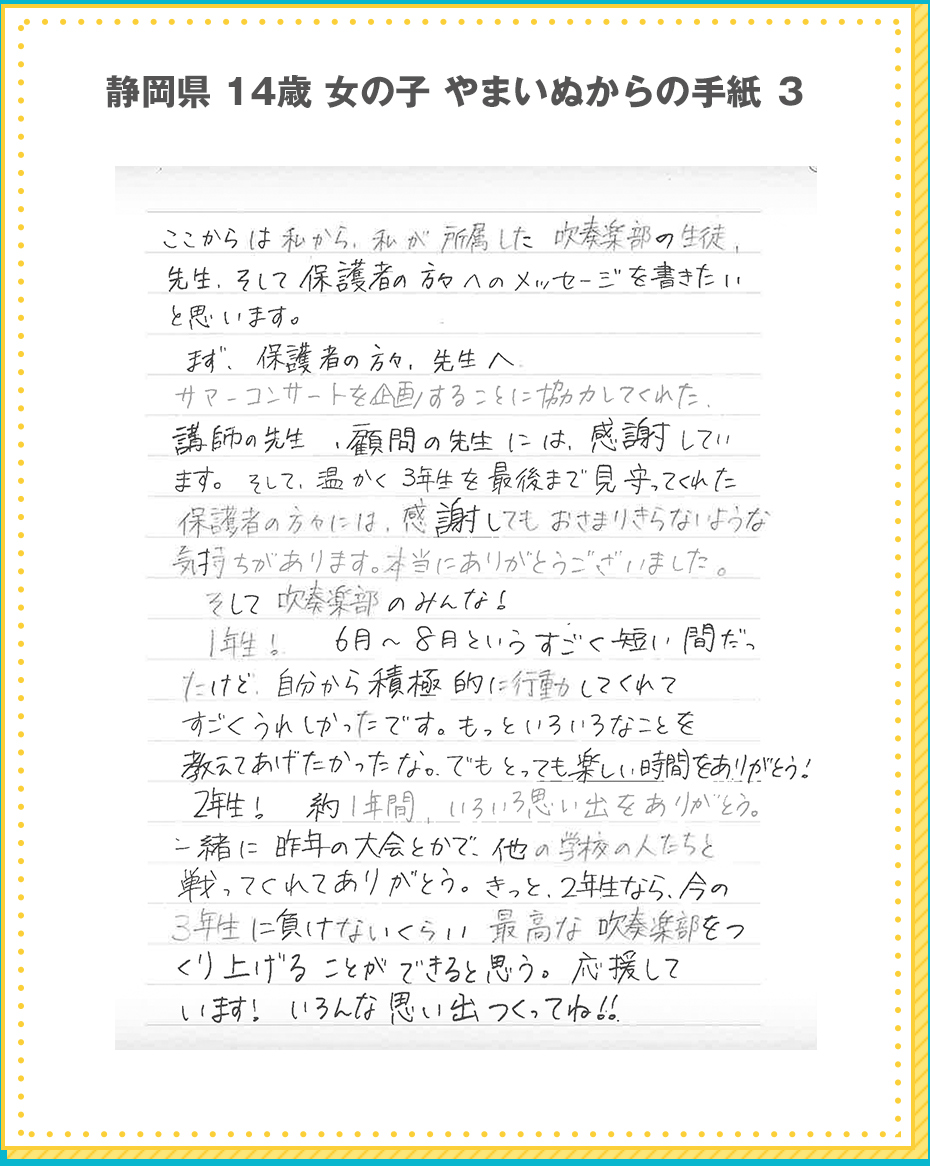 静岡県 14歳 女の子 やまいぬからの手紙 3
ここからは私から、私が所属した吹奏楽部の生徒、
先生、そして保護者の方々へのメッセージを書きたい
と思います。
まず、保護者の方々、先生へ
サマーコンサートを企画することに協力してくれた、
講師の先生、顧問の先生には、感謝してい
ます。そして、温かく3年生を最後まで見守ってくれた
保護者の方々には、感謝してもおさまりきらないような
気持ちがあります。本当にありがとうございました。
そして吹奏楽部のみんな!
1年生! 6月～8月というすごく短い間だっ
たけど、自分から積極的に行動してくれて
すごくうれしかったです。もっといろいろなことを
教えてあげたかったな。でもとっても楽しい時間をありがとう!
2年生! 約1年間、いろいろ思い出をありがとう。
一緒に昨年の大会とかで、他の学校の人たちと
戦ってくれてありがとう。きっと、2年生なら、今の
3年生に負けないくらい最高な吹奏楽部をつ
くり上げることができると思う。応援して
います! いろんな思い出つくってね!!